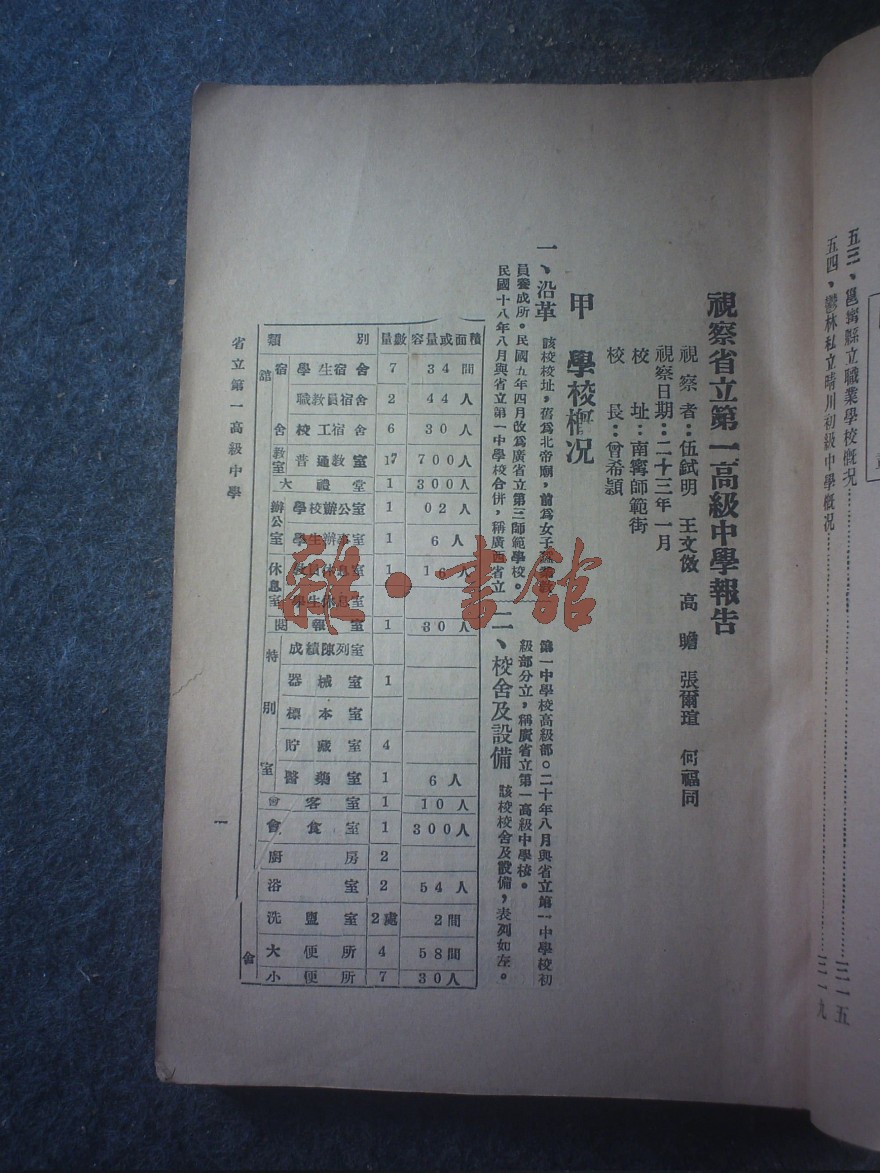 五三、邕寧縣立職業學校概況……三一五
五四、鬱林私立晴川初級中學概況……三一九
視察省立第一高級中學報告
視察者：伍鉽明 王文倣 高瞻 張爾瑄 何福同
視察日期：二十三年一月
校址：南寧師範街
校長：曾希頴
甲 學校概况
一、沿革 該校校址，舊爲北帝廟，前爲女子
員養成所。民國五年四月改爲廣省立第三師範學校。
民國十八年八月與省立第一中學校合併，稱廣西省立
第一中學校高級部。二十年八月與省立第一中學校初
級部分立，稱廣省立第一高級中學校。
二、校舍及設備 該校校舍及設備，表列如左。
類別 數量 容量或面積
宿舍 學生宿舍 7 34間
職教員宿舍 2 44人
校工宿舍 6 30人
教室 普通教室 17 700人
大禮堂 1 300人
辦公室 學校辦公室 1 02人
學生辦事室 1 6人
休息室 教員休息室 1 16人
學生休息室
閱報室 1 30人
特別室 成績陳列室
器械室 1
標本室
貯藏室 4
醫藥室 1 6人
會客室 1 10人
會食室 1 300人
廚房 2
浴室 2 54人
洗盥室 2處 2間
大便所 4 58間
小便所 7 30人
舍
省立第一高級中學
一
雜·書館